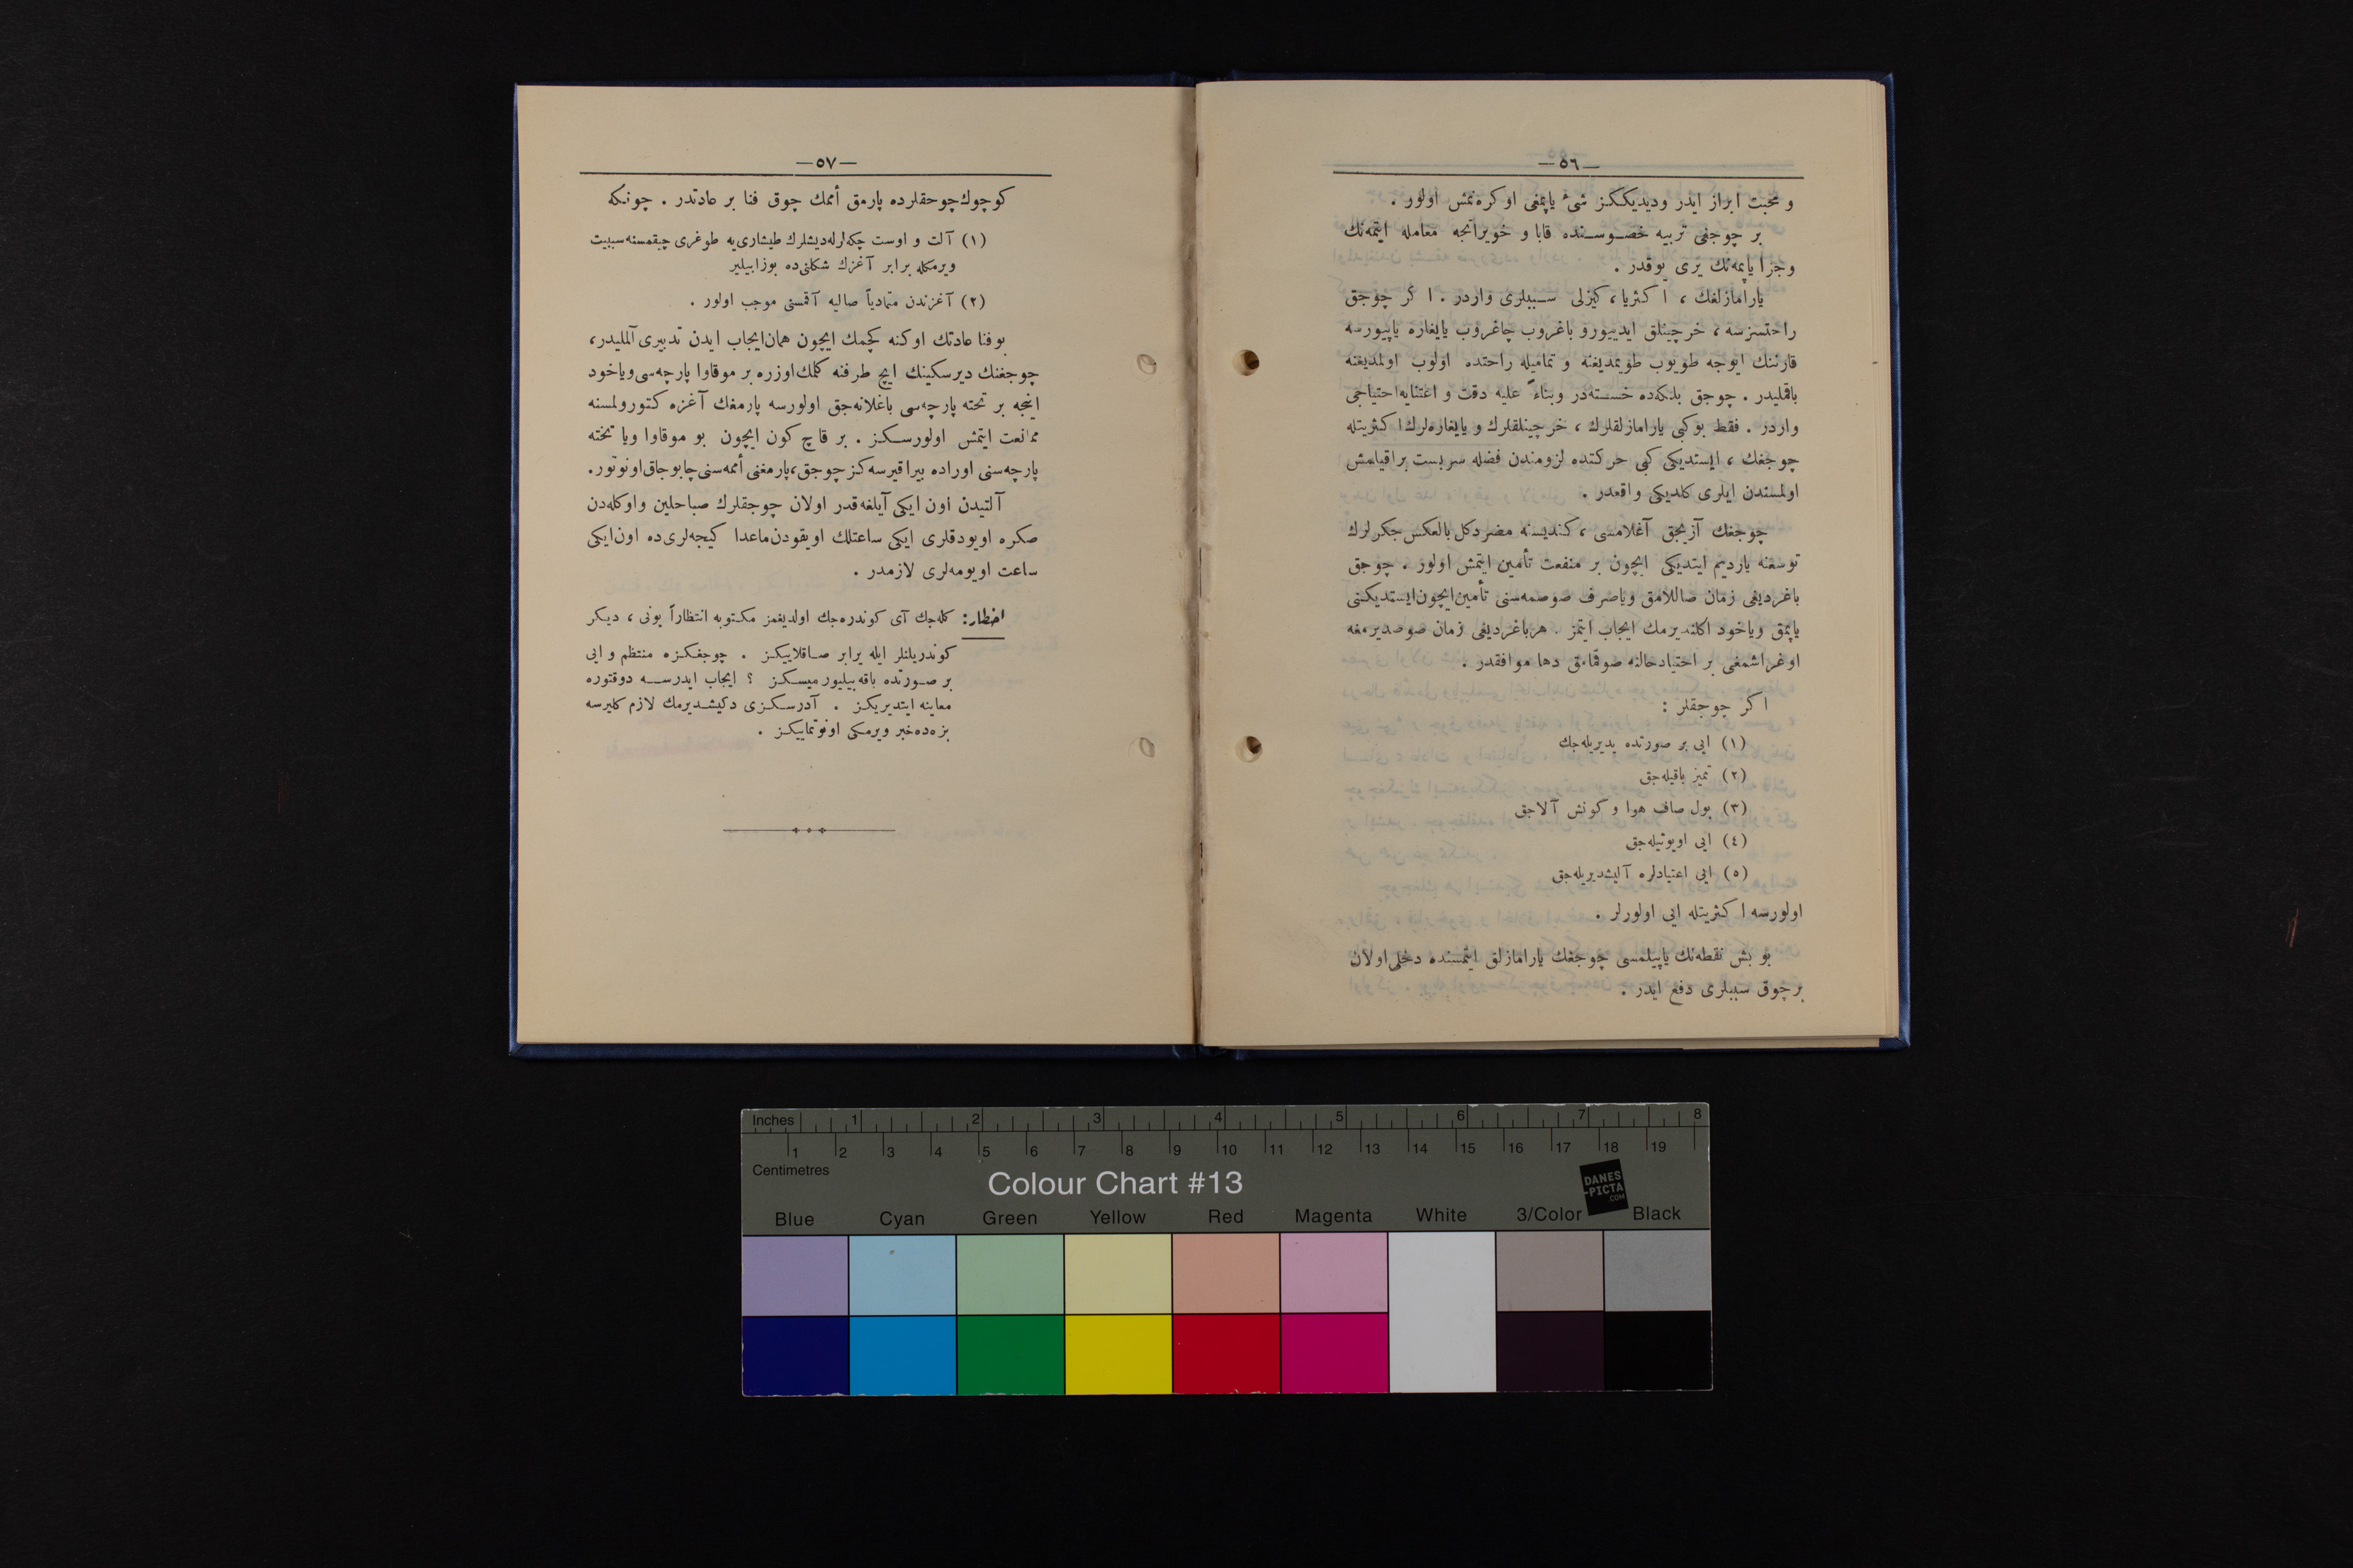 —٥٦—
و محبت ابراز ایدر ودیدیککز شیء یاپمغی اوکره‌نمش اولور .
بر چوجغی تربیه خصوسنده قابا و خویراتجه معامله ایتمه‌نك
وجزا یاپمه‌نك یری یوقدر .
یارامازلغك ، اکثریا ، کیزلی سببلری واردر . اکر چوجق
راحتسزسه ، خرچینلق ایدییورو باغروب چاغروب یایغاره یاپیورسه
قارننك ایوجه طویوب طویمدیغنه و تمامیله راحتده اولوب اولمدیغنه
باقملیدر . چوجق بلکه‌ده خسته‌در وبناءً علیه دقت و اعتنایه احتیاجی
واردر . فقط بوکبی یارامازلقلرك ، خرچینلقلرك و یایغاره‌لرك اکثریتله
چوجغك ، ایستدیکی کبی حرکتده لزومندن فضله سربست براقیلمش
اولمسندن ایلری کلدیکی واقعدر .
چوجغك آزیجق آغلامسی ، کندیسنه مضر دکل بالعکس جکرلرك
توسعنه یاردیم ایتدیکی ایچون بر منفعت تأمین ایتمش اولور . چوجق
باغردیغی زمان صاللامق ویاصرف صوصمه‌سنی تأمین ایچون ایستدیکنی
یاپمق ویاخود اکلندیرمك ایجاب ایتمز . هرباغردیغی زمان صوصدیرمغه
اوغراشمغی بر اعتیادحالنه صوقمامق دها موافقدر .
اکر چوجقلر :
(١) ایی بر صورتده یدیریله‌جك
(٢) تمیز باقیله‌جق
(٣) بول صاف هوا و کونش آلاجق
(٤) ایی اویوتیله‌جق
(٥) ایی اعتیادلره آلیشدیریله‌جق
اولورسه اکثریتله ایی اولورلر .
بو بش نقطه‌نك یاپیلمسی چوجغك یارامازلق ایتمسنده دخلی اولان
برچوق سببلری دفع ایدر .
—٥٧—
کوچوك چوحقلرده پارمق أممك چوق فنا بر عادتدر . چونکه
(١) آلت و اوست چکه‌لرله‌دیشلرك طیشاری‌یه طوغری چیقمسنه سببیت
ویرمکله برابر آغزك شکلنی‌ده بوزابیلیر
(٢) آغزندن متمادیاً صالیه آقمسنی موجب اولور .
بوفنا عادتك اوکنه کچمك ایچون همان ایجاب ایدن تدبیری آلملیدر ،
چوجغنك دیرسکینك ایچ طرفنه کلمك اوزره بر موقاوا پارچه‌سی ویاخود
اینجه بر تخته پارچه‌سی باغلانه‌جق اولورسه پارمغك آغزه کتورولمسنه
ممانعت ایتمش اولورسکز . بر قاچ کون ایچون بو موقاوا ویا تخته
پارچه‌سنی اوراده بیراقیرسه‌کز چوجق ، پارمغنی أممه‌سنی چابوجاق اونوتور.
آلتیدن اون ایکی آیلغه قدر اولان چوجقلرك صباحلین واوکله‌دن
صکره اویودقلری ایکی ساعتلك اویقودن‌ماعدا کیجه‌لری‌ده اون‌ایکی
ساعت اویومه‌لری لازمدر .
اخطار: کله‌جك آی کوندره‌جك اولدیغمز مکتوبه انتظاراً بونی ، دیکر
کوندریلنلر ایله برابر صاقلاییکز . چوجغکزه منتظم و ایی
بر صورتده باقه‌بیلیورمیسکز ؟ ایجاب ایدرسه دوقتوره
معاینه ایتدیریکز . آدرسکزی دکیشدیرمك لازم کلیرسه
بزه‌ده خبر ویرمکی اونوتماییکز .
Inches 1 2 3 4 5 6 7 8
1 2 3 4 5 6 7 8 9 10 11 12 13 14 15 16 17 18 19
Centimetres
Colour Chart #13
DANES
-PICTA
.COM
Blue Cyan Green Yellow Red Magenta White 3/Color Black